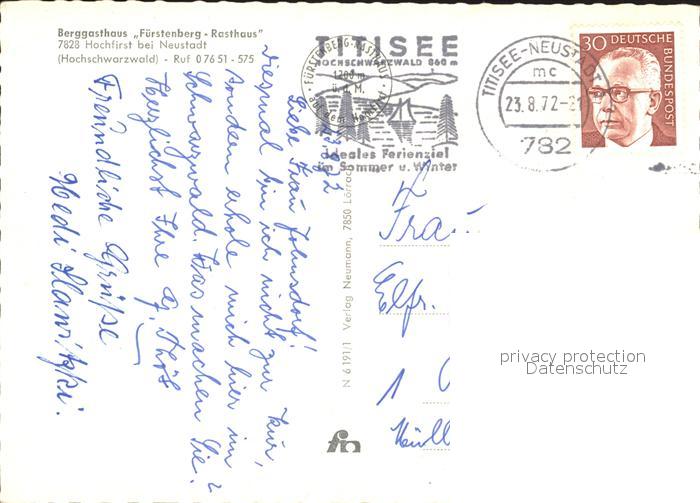 Berggasthaus „Fürstenberg - Rasthaus"
7828 Hochfirst bei Neustadt
(Hochschwarzwald) - Ruf 0 76 51 - 575
TITISEE
HOCHSCHWARZWALD 860 m
ideales Ferienziel
im Sommer u. Winter
FÜRSTENBERG-RASTHAUS
1200 m
ü. d. M.
auf dem Hochfirst
TITISEE-NEUSTADT
mc
23.8.72-21
782
30 DEUTSCHE
BUNDESPOST
Liebe Frau Johnsdorf!
diesmal bin ich nicht zur Kur,
sondern erhole mich hier im
Schwarzwald. Was machen Sie?
Herzlichst Ihre
Freundliche Grüße
Hedi
N 6191/1 Verlag Neumann, 7850 Lörrach
Frau
Elfr.
1
Müll
fn
privacy protection
Datenschutz